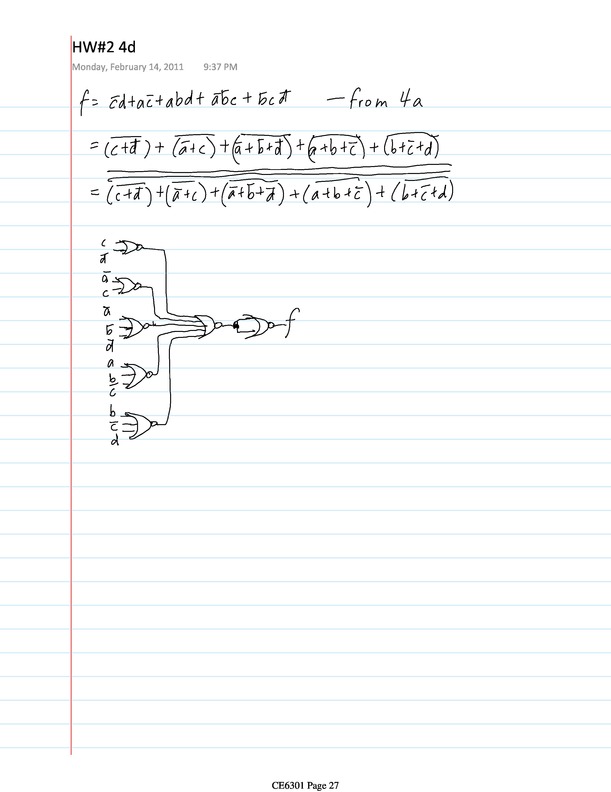 HW#2 4d
Monday, February 14, 2011 9:37 PM
f = c̅d + ac̅ + abd + a̅b̅c + b̅cd̅ — from 4a
= (c+d̅)̅ + (a̅+c)̅ + (a̅+b̅+d̅)̅ + (a+b+c̅)̅ + (b+c̅+d)̅
= (c+d̅)̅ + (a̅+c)̅ + (a̅+b̅+d̅)̅ + (a+b+c̅)̅ + (b+c̅+d)̅
c
d̅
a̅
c
a̅
b̅
d̅
f
a
b
c̅
b
c̅
d
CE6301 Page 27